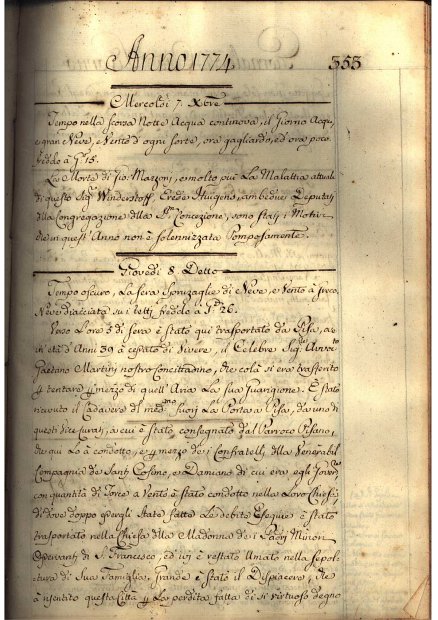 Anno 1774
353
Mercoldi 7. Xbre
Tempo nella scorsa Notte Acqua continova, il Giorno Acqu,
e gran Neve, e Vento d'ogni sorte, ora gagliardo, ed ora poco
freddo à Gdi 15.
La Morte di Gio: Mazzoni, e molto più La Malattia attuale
di questo Sigr Winderstoff, Erede Hugons, ambedue Deputati
dlla Congregazione dlla SSma Concezione, sono stati i Motivi,
che in quest'Anno non è Solennizzata Pomposamente.
Giovedi 8. Detto
Tempo oscuro, La sera Spruzzaglie di Neve, e Vento à freco.
Neve diacciata su i tetti, freddo à Gdi 26.
Verso L'ore 5 di sera è stato qui trasportato da Pisa, ove
in età d'Anni 39 à cessato di Vivere, il Celebre Sigre Avvto
Gaetano Martini nostro Concittadino, che colà si era trasferito
p tentare p mezzo di quell'Aria La sua Guarigione. È stato
ricevuto il Cadavere dl medmo fuori La Porta a Pisa, da uno di
questi dite Curati, a cui è stato consegnato dal Parroco Pisano,
che qui Lo à condotto, e p mezzo de i Confratelli dlla Venerabil
Compagnia de Santi Cosimo, e Damiano di cui era egli
con quantità di Torce a Vento è stato condotto nella Loro Chiesa
di dove doppo avergli State fatte Le debite Esequie è stato
trasportato nella Chiesa dlla Madonna de i Padri Minori
Osservanti di S. Francesco, ed ivi è restato Umato nella Sepol-
tura di Sua Famiglia. Grande è stato il Dispiacere, che
à risentito questa Città p La perdita fatta di sì virtuoso Degno